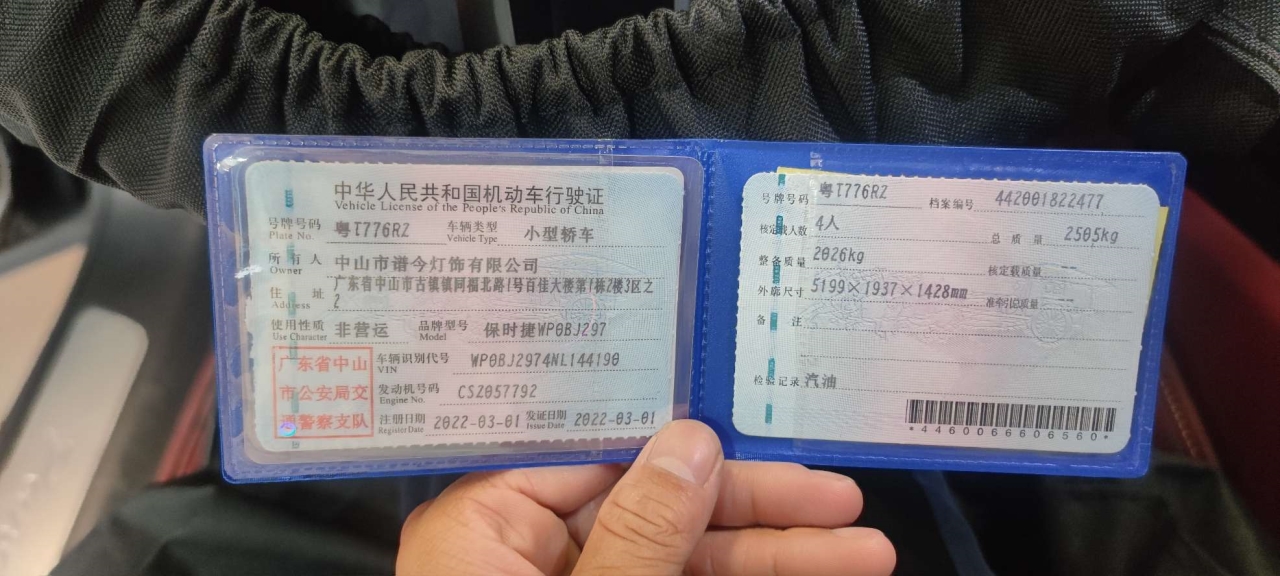 中华人民共和国机动车行驶证
Vehicle License of the People's Republic of China
号牌号码 粤T776RZ 车辆类型 小型轿车
Plate No. Vehicle Type
所有人 中山市谱今灯饰有限公司
Owner
住址 广东省中山市古镇镇同福北路1号百佳大楼第1栋2楼3区之
Address 2
使用性质 非营运 品牌型号 保时捷WP0BJ297
Use Character Model
广东省中山
市公安局交
通警察支队
车辆识别代号 WP0BJ2974NL144190
VIN
发动机号码 CSZ057792
Engine No.
注册日期 2022-03-01 发证日期 2022-03-01
Register Date Issue Date
号牌号码 粤T776RZ 档案编号 442001822477
核定载人数 4人 总质量 2505kg
整备质量 2026kg 核定载质量 --
外廓尺寸 5199×1937×1428mm 准牵引总质量 --
备注
检验记录 汽油
*4460066606560*